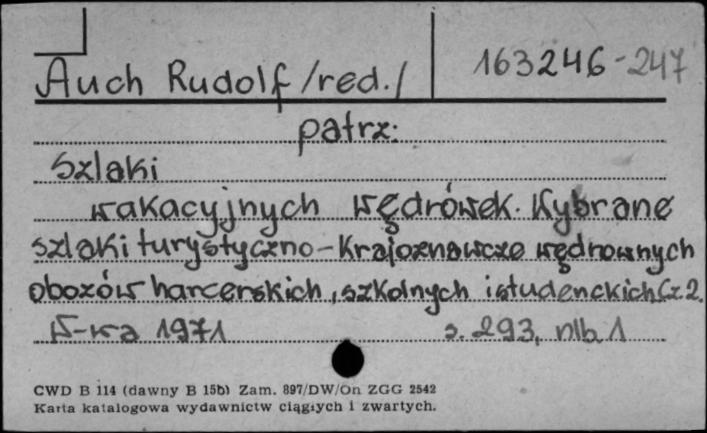 Auch Rudolf /red./ 163246-247
patrz:
Szlaki
wakacyjnych wędrówek. Wybrane
szlaki turystyczno-krajoznawcze wędrownych
obozów harcerskich, szkolnych i studenckich Cz 2.
W-wa 1971 s. 293, nlb 1
CWD B 114 (dawny B 15b) Zam. 897/DW/On ZGG 2542
Karta katalogowa wydawnictw ciągłych i zwartych.